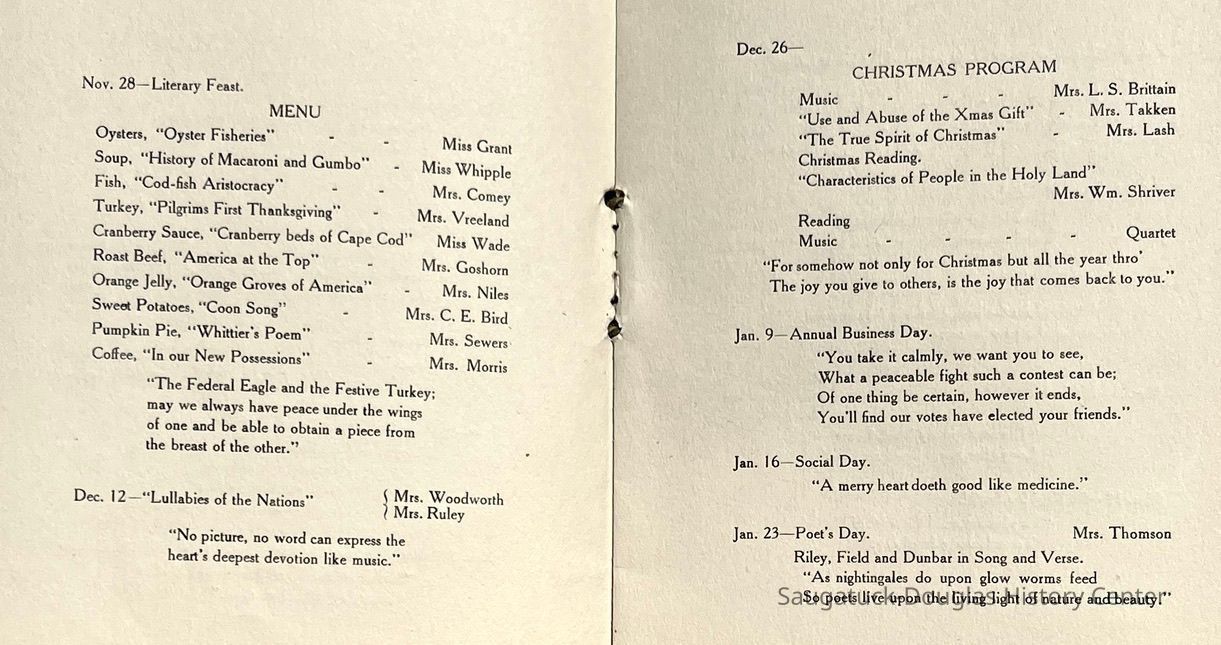 Nov. 28—Literary Feast.
MENU
Oysters, "Oyster Fisheries" - - Miss Grant
Soup, "History of Macaroni and Gumbo" - Miss Whipple
Fish, "Cod-fish Aristocracy" - - Mrs. Comey
Turkey, "Pilgrims First Thanksgiving" - Mrs. Vreeland
Cranberry Sauce, "Cranberry beds of Cape Cod" Miss Wade
Roast Beef, "America at the Top" - Mrs. Goshorn
Orange Jelly, "Orange Groves of America" - Mrs. Niles
Sweet Potatoes, "Coon Song" - Mrs. C. E. Bird
Pumpkin Pie, "Whittier's Poem" - Mrs. Sewers
Coffee, "In our New Possessions" - Mrs. Morris
"The Federal Eagle and the Festive Turkey;
may we always have peace under the wings
of one and be able to obtain a piece from
the breast of the other."
Dec. 12—"Lullabies of the Nations" { Mrs. Woodworth
Mrs. Ruley
"No picture, no word can express the
heart's deepest devotion like music."
Dec. 26—
CHRISTMAS PROGRAM
Music - - - Mrs. L. S. Brittain
"Use and Abuse of the Xmas Gift" - Mrs. Takken
"The True Spirit of Christmas" - Mrs. Lash
Christmas Reading.
"Characteristics of People in the Holy Land"
Mrs. Wm. Shriver
Reading
Music - - - - Quartet
"For somehow not only for Christmas but all the year thro'
The joy you give to others, is the joy that comes back to you."
Jan. 9—Annual Business Day.
"You take it calmly, we want you to see,
What a peaceable fight such a contest can be;
Of one thing be certain, however it ends,
You'll find our votes have elected your friends."
Jan. 16—Social Day.
"A merry heart doeth good like medicine."
Jan. 23—Poet's Day. Mrs. Thomson
Riley, Field and Dunbar in Song and Verse.
"As nightingales do upon glow worms feed
So poets live upon the living light of nature and beauty."
Saugatuck-Douglas History Center